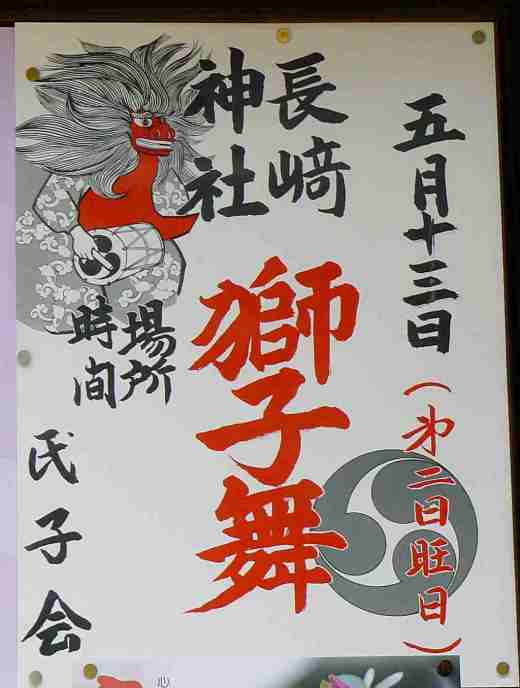 五月十三日
(第二日旺日)
長﨑
神社
獅子舞
場所
時間
氏子会
心